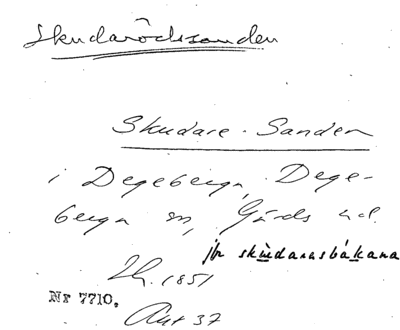 Skudarödssanden
Skudare-Sanden
i Degeberga, Dege-
berga sn, Gärds hd.
jfr skùdarasbákana
Lh. 1851
Nr 7710.
Akt 37